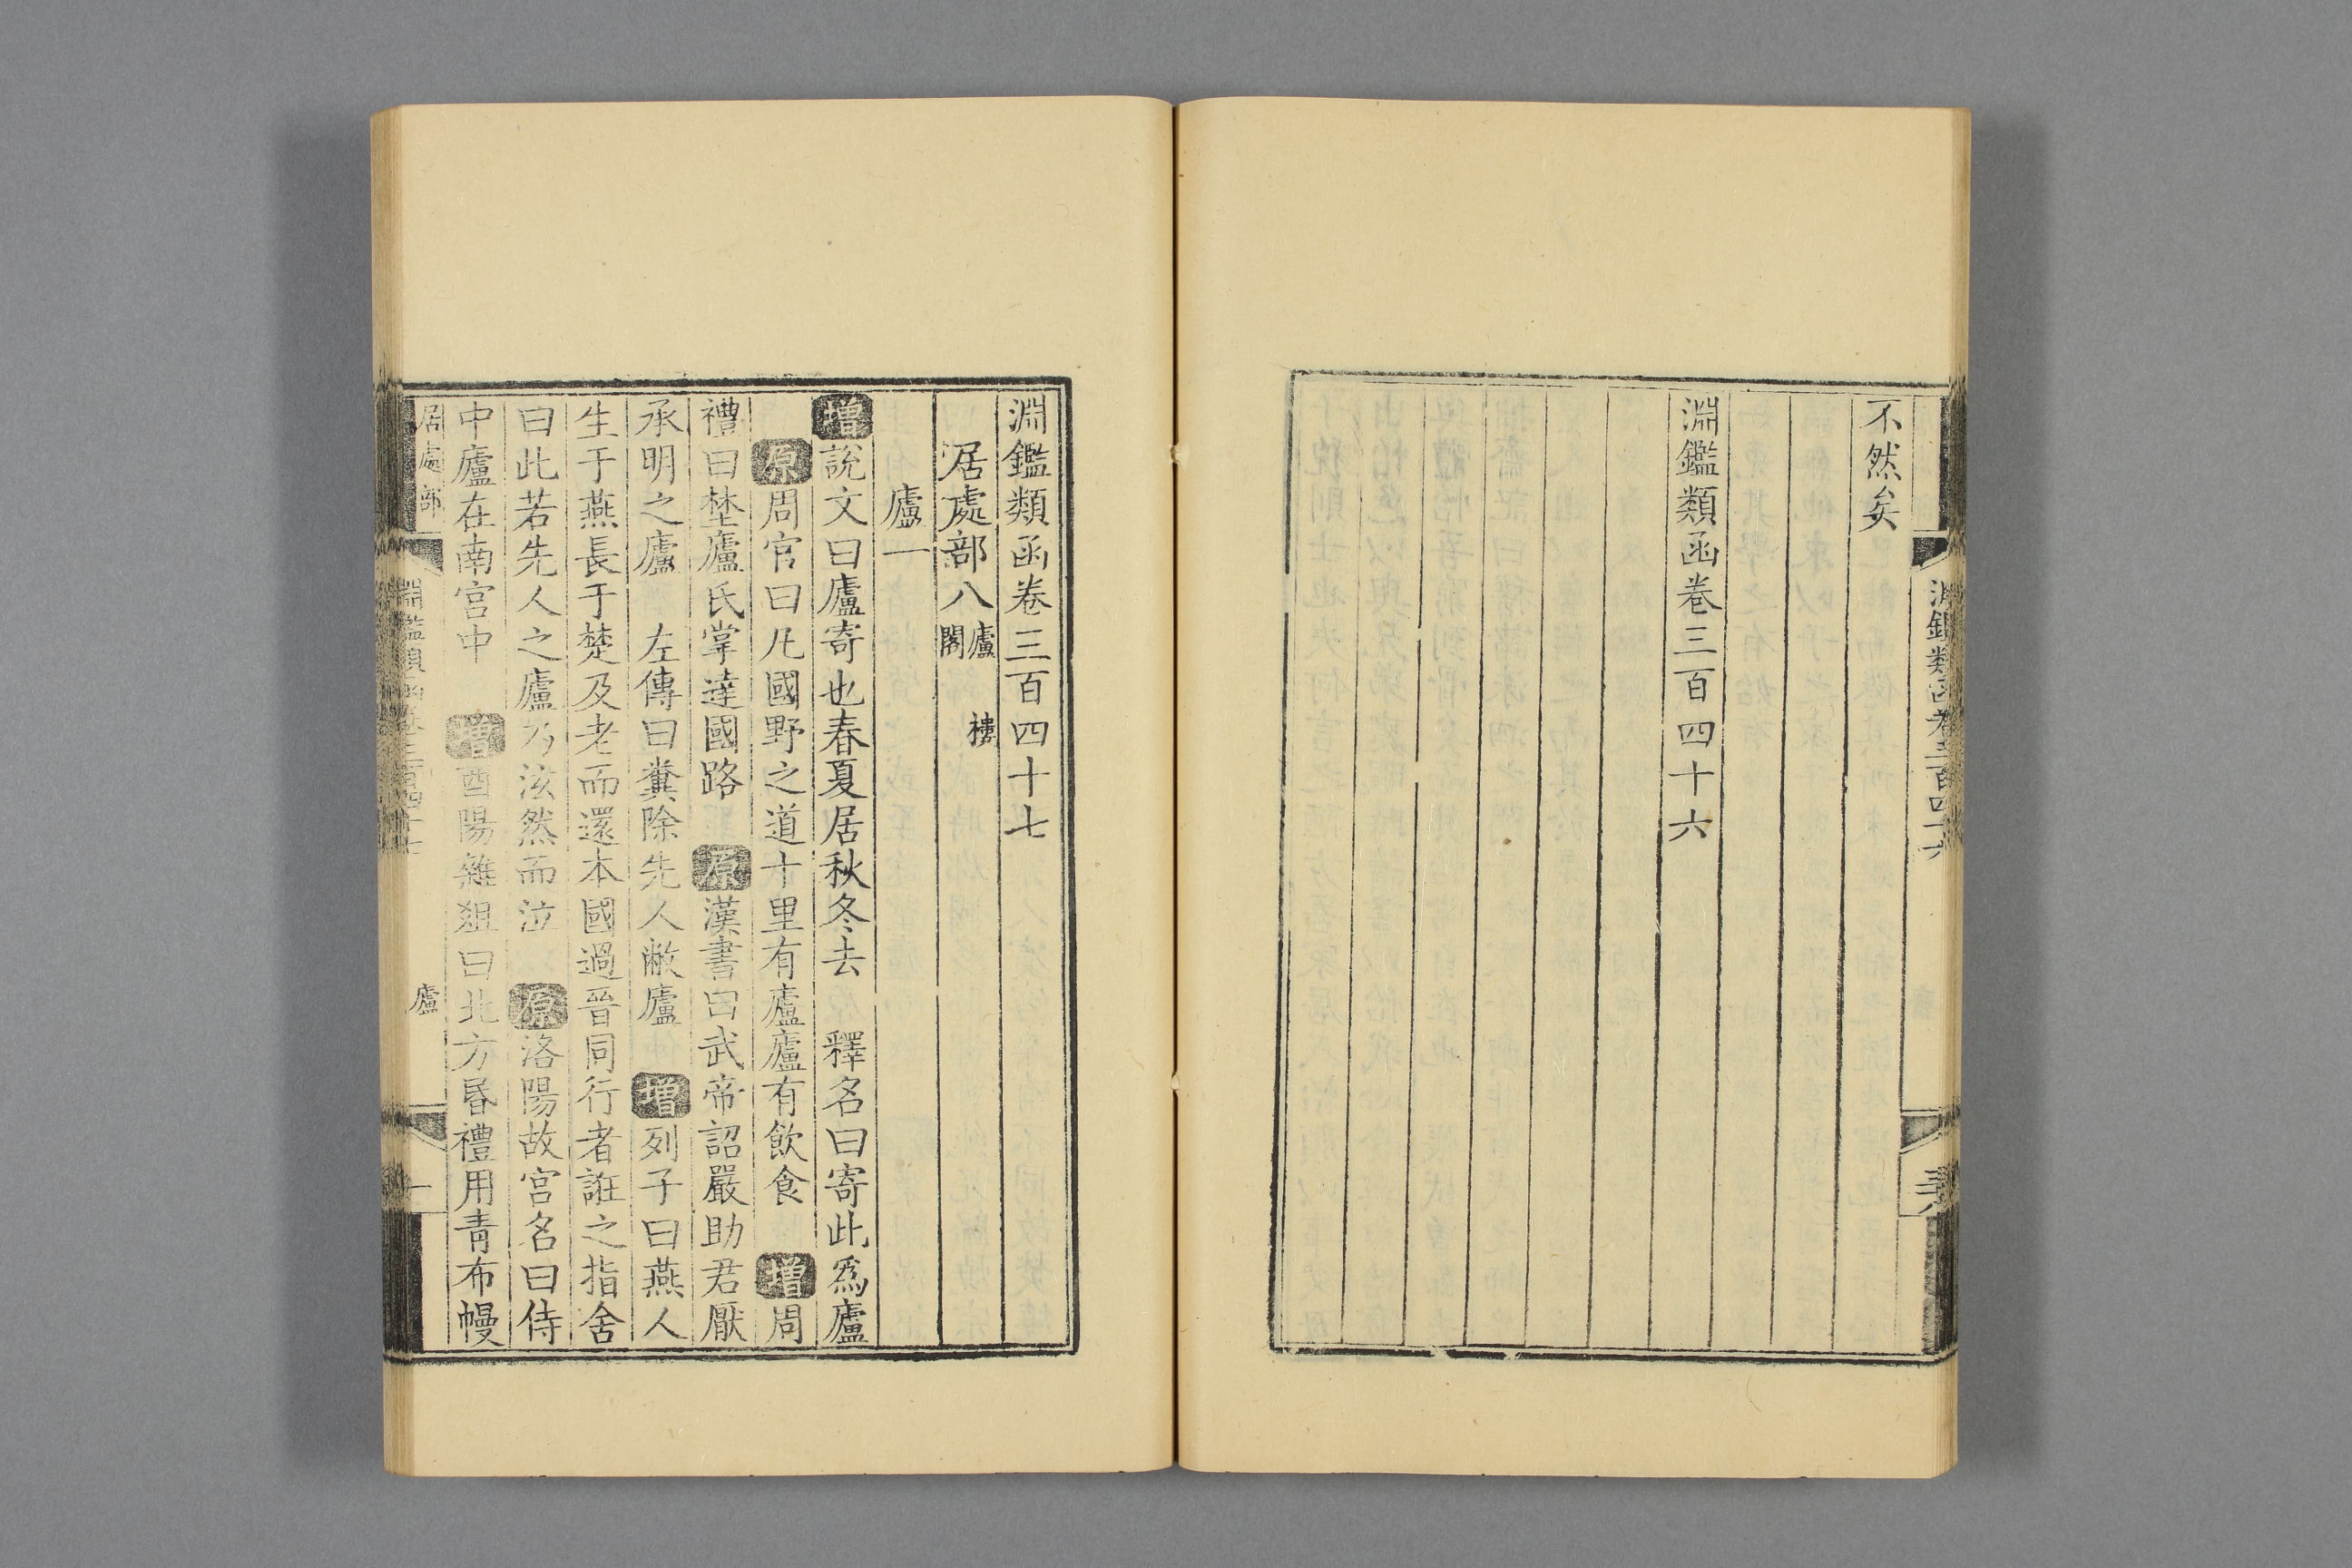 不然矣
淵鑑類函卷三百四十六
淵鑑類函卷三百四十七
居處部八 廬 樓 閣
廬一
增說文曰廬寄也春夏居秋冬去 釋名曰寄此爲廬
原周官曰凡國野之道十里有廬廬有飲食 增周
禮曰埜廬氏掌達國路 原漢書曰武帝詔嚴助君厭
承明之廬 左傳曰糞除先人敝廬 增列子曰燕人
生于燕長于楚及老而還本國過晉同行者誑之指舍
曰此若先人之廬乃泫然而泣 原洛陽故宮名曰侍
中廬在南宮中 增酉陽雜俎曰北方昏禮用青布幔
居處部 淵鑑類函卷三百四十七 廬 一